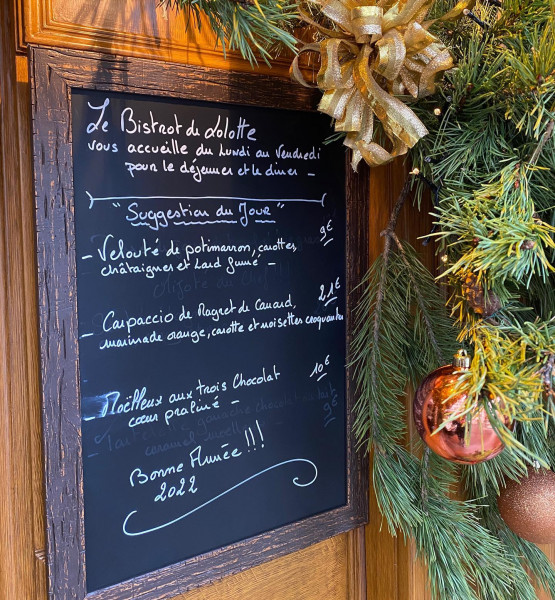 Le Bistrot de Lolotte
vous accueille du Lundi au Vendredi
pour le déjeuner et le dîner -
"Suggestion du Jour"
- Velouté de potimarron, carottes, 9€
châtaignes et Lard fumé -
- Carpaccio de Magret de Canard, 21€
marinade orange, carotte et noisettes croquantes
- Moëlleux aux trois Chocolat 10€
cœur praliné -
Bonne Année !!!
2022